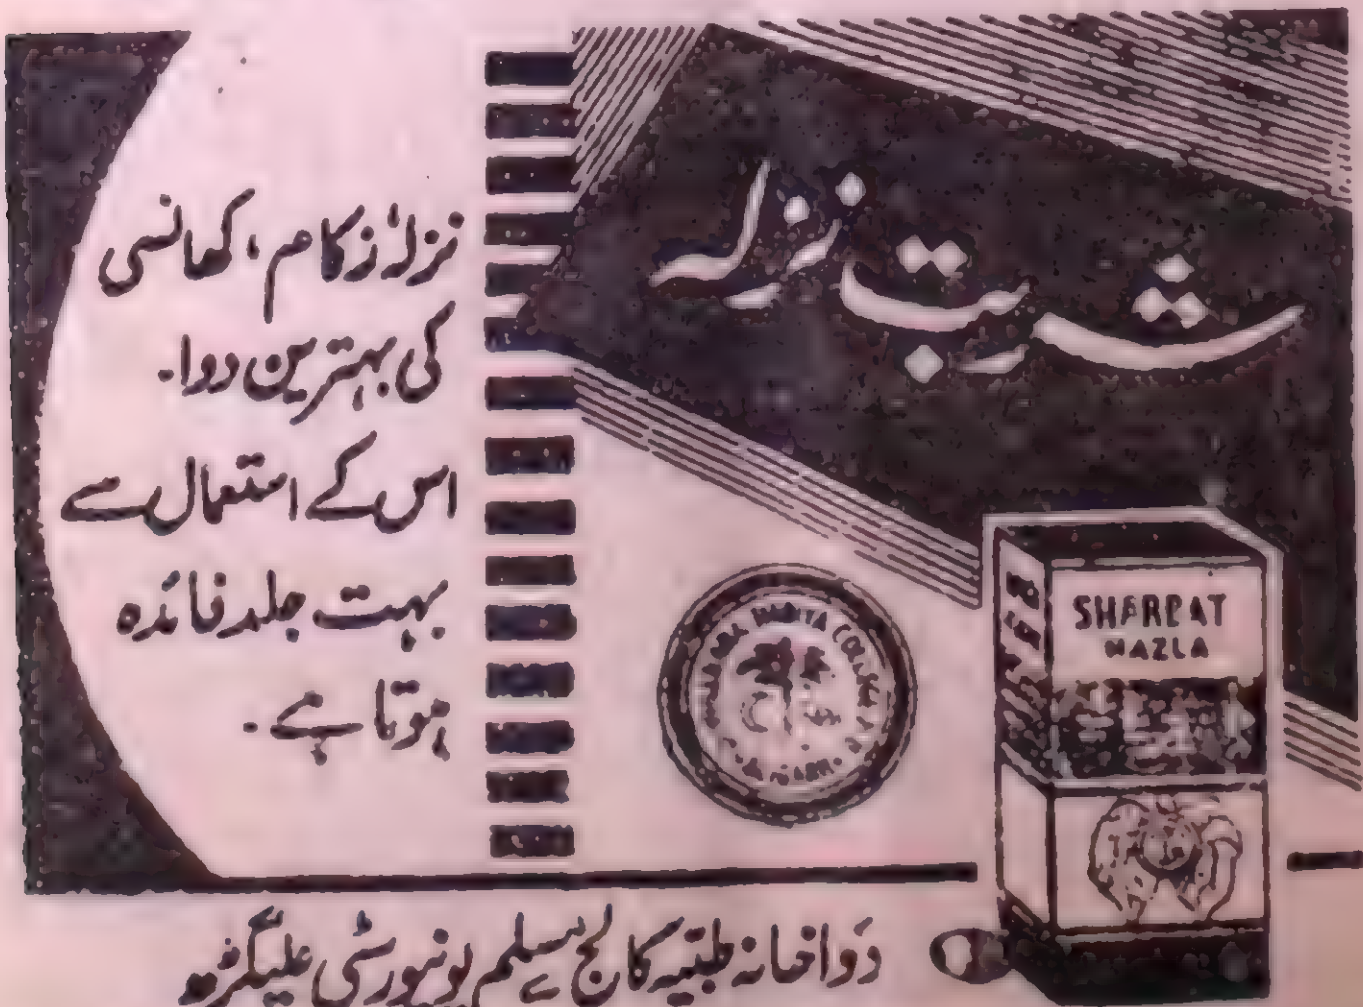 شربت نزلہ
نزلہ زکام، کھانسی
کی بہترین دوا۔
اس کے استعمال سے
بہت جلد فائدہ
ہوتا ہے۔
TIBBIYA COLLEGE
SHARBAT
NAZLA
دواخانہ طبیہ کالج مسلم یونیورسٹی علیگڑھ